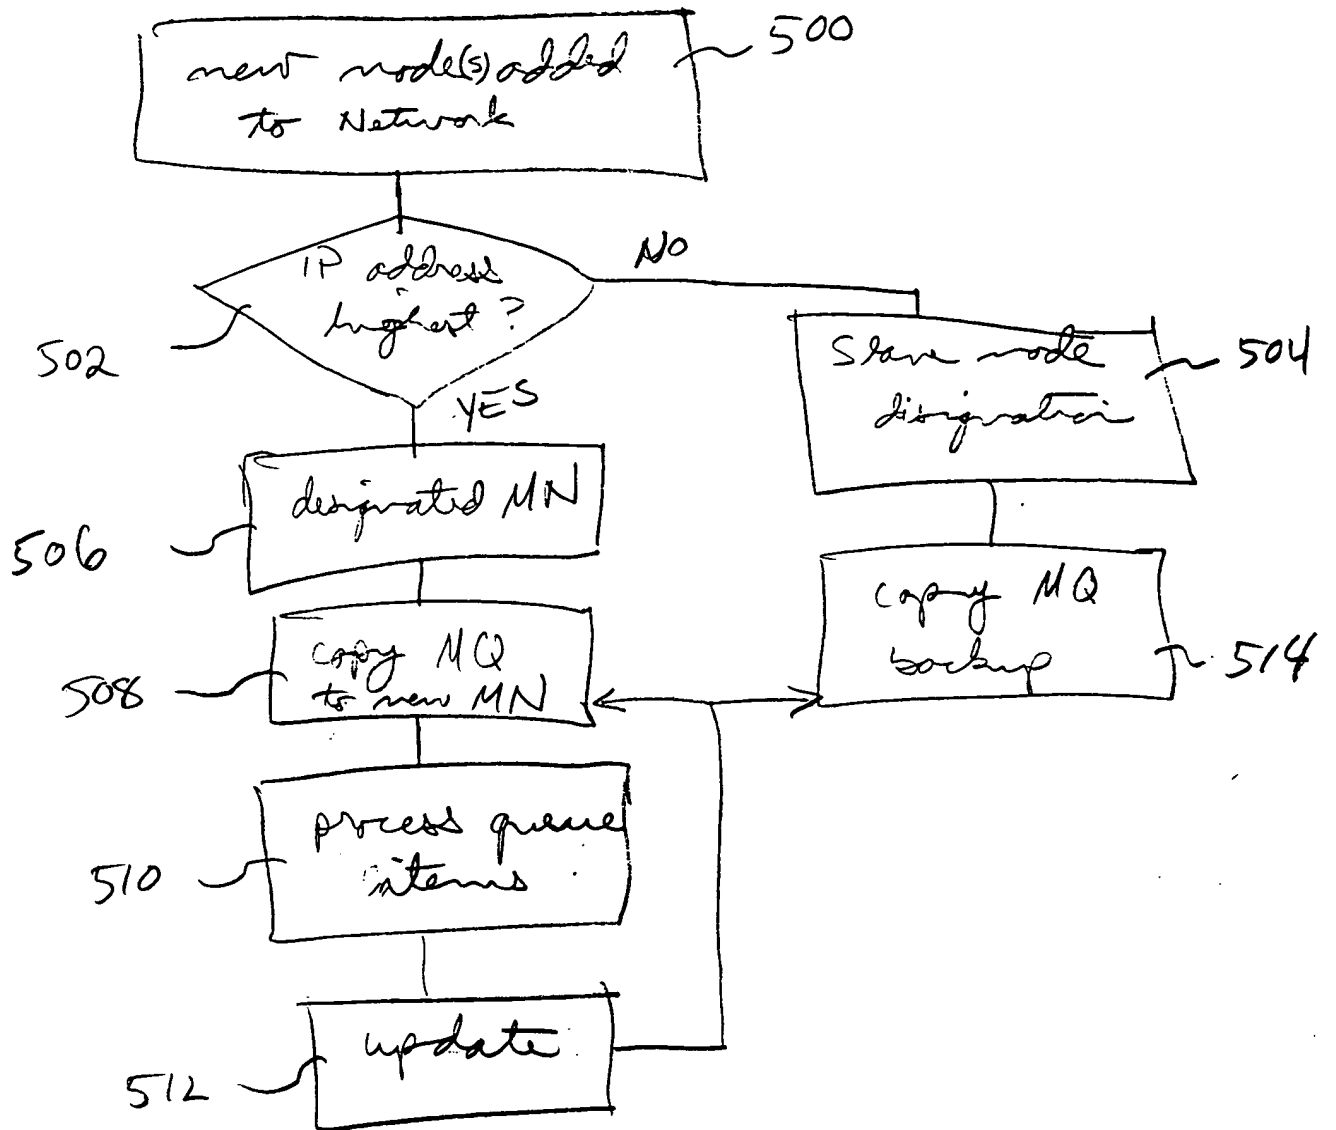 new node(s) added
to Network
500
IP address
highest?
NO
502
YES
Slave node
designation
504
designated MN
506
copy MQ
to new MN
508
copy MQ
backup
514
process queue
items
510
update
512